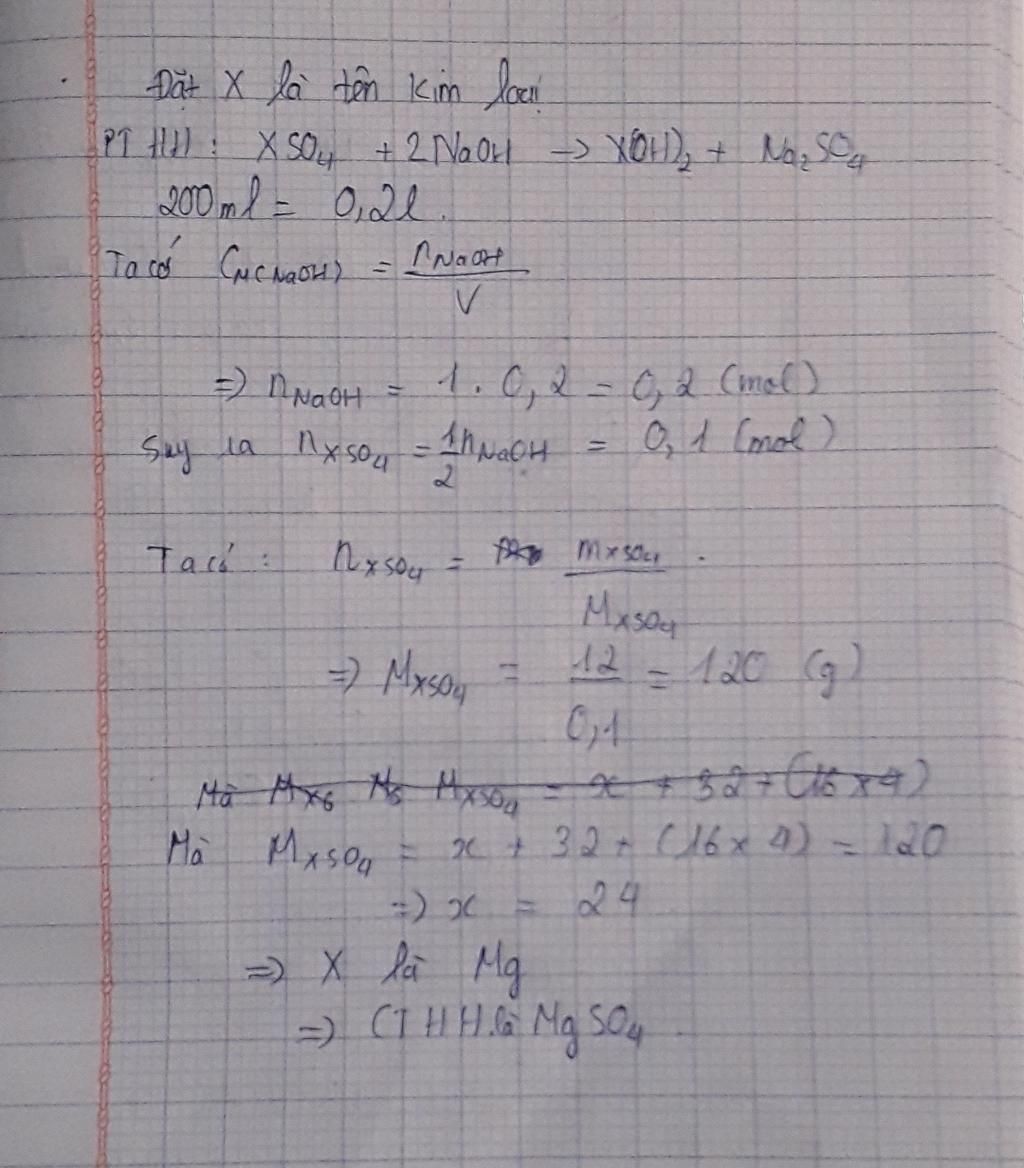 Đặt X là tên kim loại
PTHH: XSO₄ + 2NaOH -> X(OH)₂ + Na₂SO₄
200ml = 0,2l.
Ta có CM(NaOH) = nNaOH / V
=> nNaOH = 1.0,2 = 0,2 (mol)
Suy ra nXSO₄ = 1/2 nNaOH = 0,1 (mol)
Ta có: nXSO₄ = mXSO₄ / MXSO₄
=> MXSO₄ = 12 / 0,1 = 120 (g)
Mà MXS MS MXSO₄ = x + 32 + (16 x 4)
Mà MXSO₄ = x + 32 + (16 x 4) = 120
=> x = 24
=> X là Mg
=> CTHH là MgSO₄.